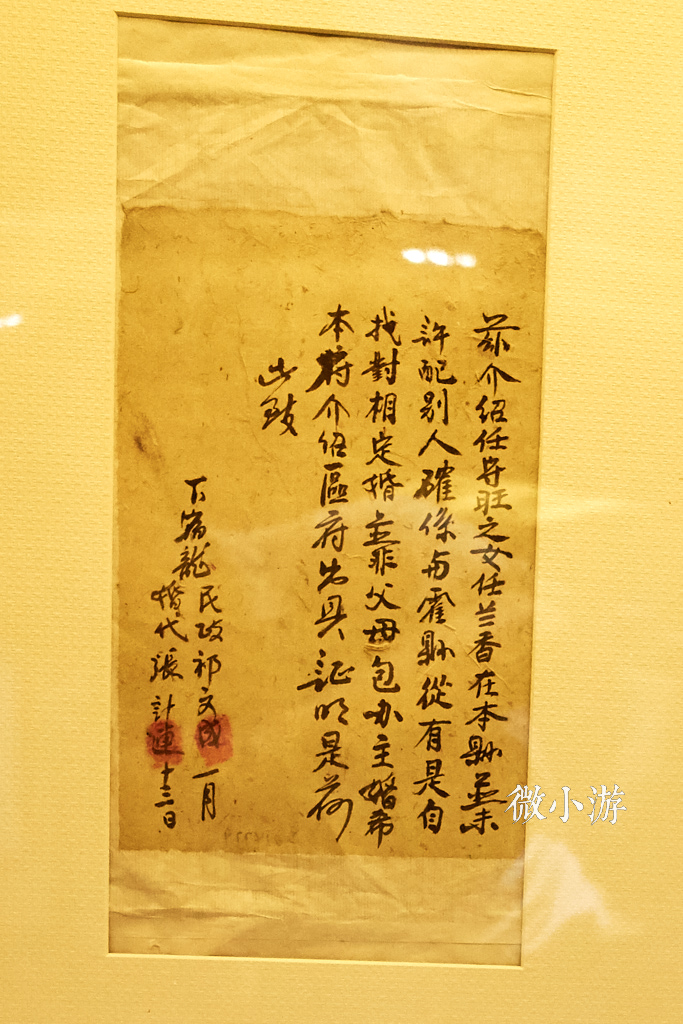 茲介绍任守旺之女任兰香在本縣並未
許配別人確係与霍縣從有是自
找對相定婚並非父母包办主婚希
本府介绍區府出具証明是荷
此致
下宿龍民政祁文成 一月
婚代張計連 十三日
微小游